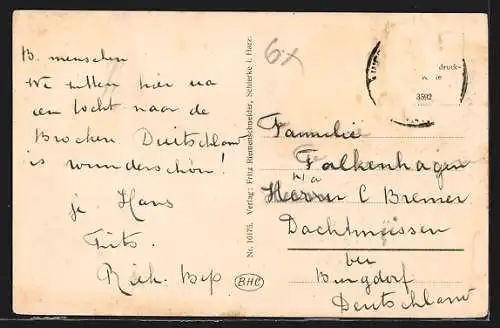 B. menschen
We zitten hier na
een tocht naar de
Brocken Duitschland
is wunderschön!
je Hans
Frits.
Rick. Bep
Nr. 16175. Verlag: Fritz Riemenschneider, Schierke i. Harz.
BHC
6x
druck-
3592
Familie
Falkenhagen
Herrn C Bremer
Dachtmissen
bei
Burgdorf
Deutschland